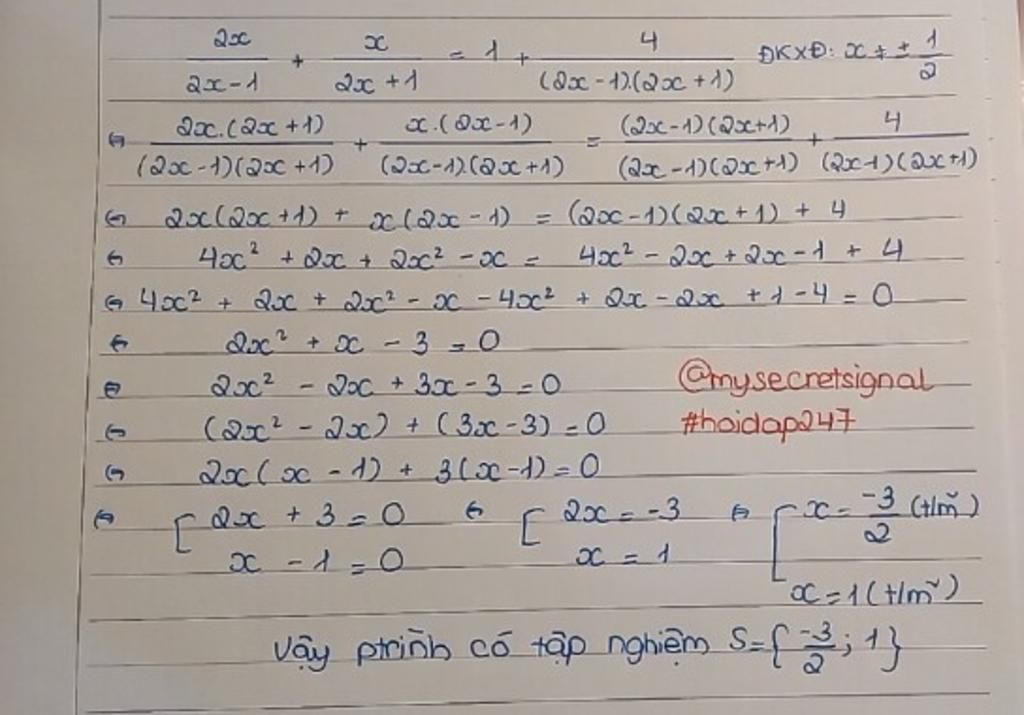 2x/(2x-1) + x/(2x+1) = 1 + 4/((2x-1).(2x+1)) ĐKXĐ: x ≠ ± 1/2
⇔ 2x.(2x+1)/((2x-1)(2x+1)) + x.(2x-1)/((2x-1).(2x+1)) = (2x-1)(2x+1)/((2x-1)(2x+1)) + 4/((2x-1)(2x+1))
⇔ 2x(2x+1) + x(2x-1) = (2x-1)(2x+1) + 4
⇔ 4x² + 2x + 2x² - x = 4x² - 2x + 2x - 1 + 4
⇔ 4x² + 2x + 2x² - x - 4x² + 2x - 2x + 1 - 4 = 0
⇔ 2x² + x - 3 = 0
⇔ 2x² - 2x + 3x - 3 = 0
@mysecretsignal
⇔ (2x² - 2x) + (3x - 3) = 0
#hoidap247
⇔ 2x(x - 1) + 3(x - 1) = 0
⇔ [ 2x + 3 = 0 ⇔ [ 2x = -3 ⇔ [ x = -3/2 (t/m)
x - 1 = 0 x = 1 x = 1 (t/m)
Vậy ptrình có tập nghiệm S = { -3/2 ; 1 }